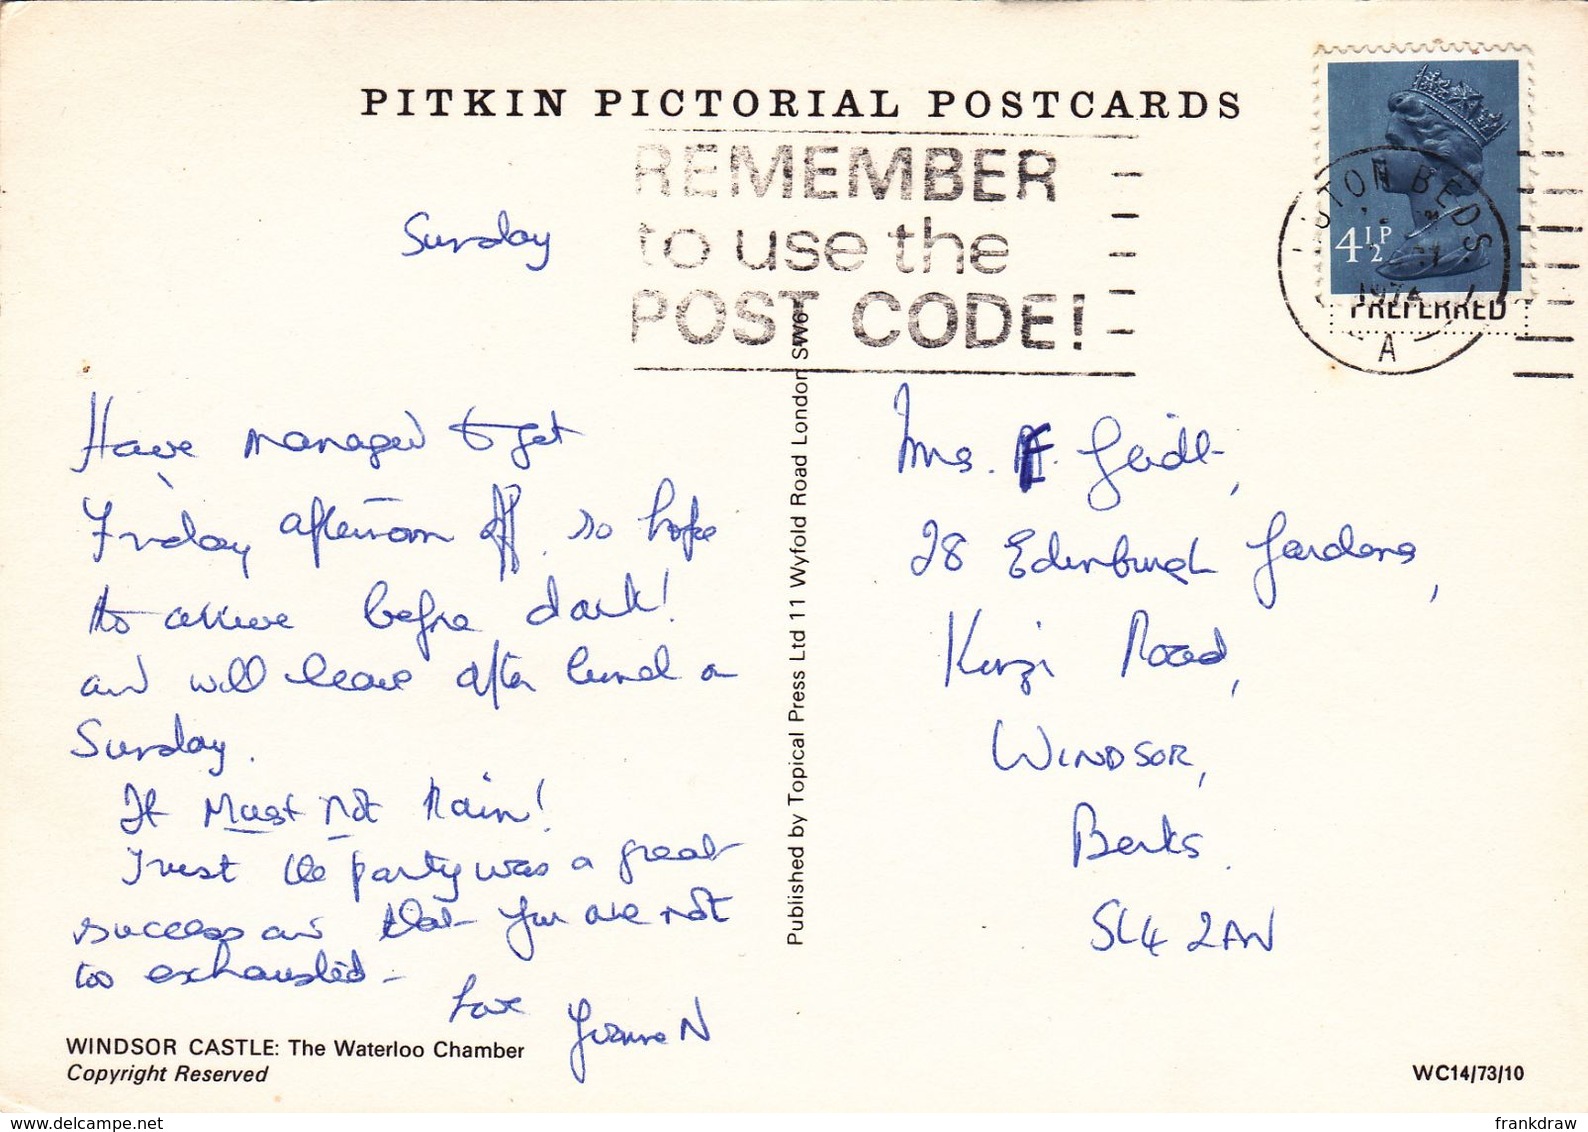 PITKIN PICTORIAL POSTCARDS
REMEMBER
to use the
POST CODE!
4½P
PREFERRED
BEDS
A
Sunday
Have managed to get
Friday afternoon off so hope
to arrive before dark!
and will leave after lunch on
Sunday.
It Must Not Rain!
Trust the party was a great
success and that you are not
too exhausted -
Love Yvonne N
Mrs. F.
28 Edinburgh Gardens,
Kings Road,
WINDSOR,
Berks.
SL4 2AN
Published by Topical Press Ltd 11 Wyfold Road London SW6
WINDSOR CASTLE: The Waterloo Chamber
Copyright Reserved
WC14/73/10
www.delcampe.net
frankdraw